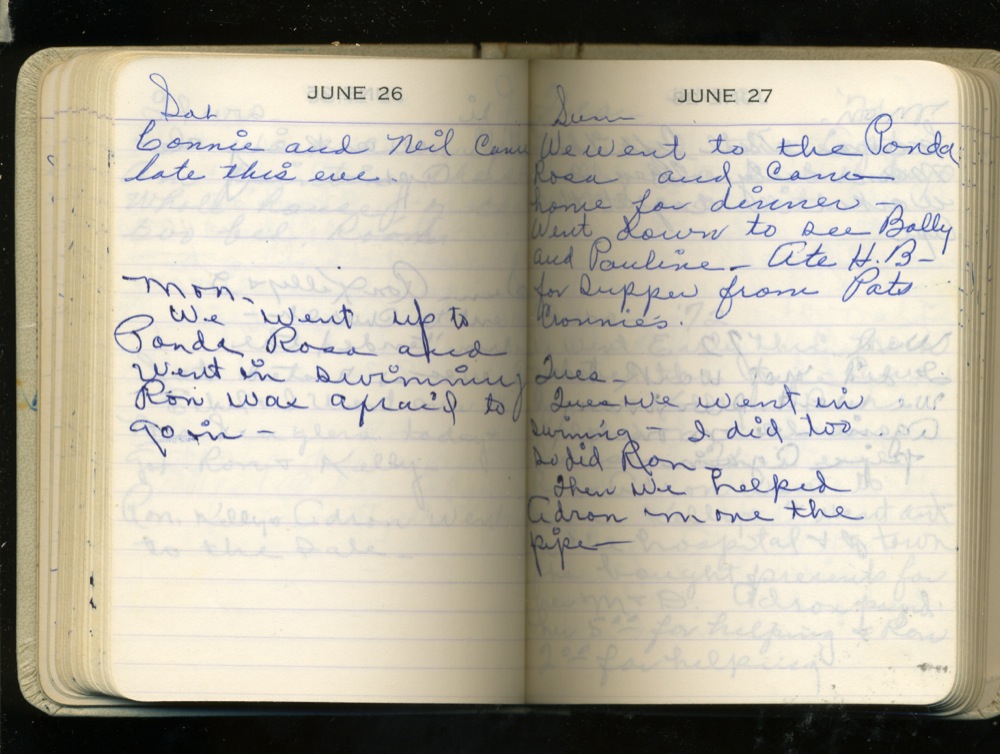 JUNE 26
Sat
Connie and Neil Came
late this eve.
Mon.
We went up to
Ponda Rosa and
Went in swimming
Ron was afraid to
go in -
JUNE 27
Sun
We went to the Ponda
Rosa and came
home for dinner -
Went down to see Bolly
and Pauline - Ate H.B-
for supper from Pats
Cronnie's.
Tues -
Tues we went in
swiming - I did too.
So did Ron -
Then we helped
Adron move the
pipe -